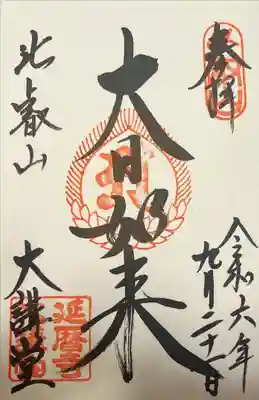 奉拝
令和六年
九月二十一日
大日如来
比叡山
大講堂
延暦寺